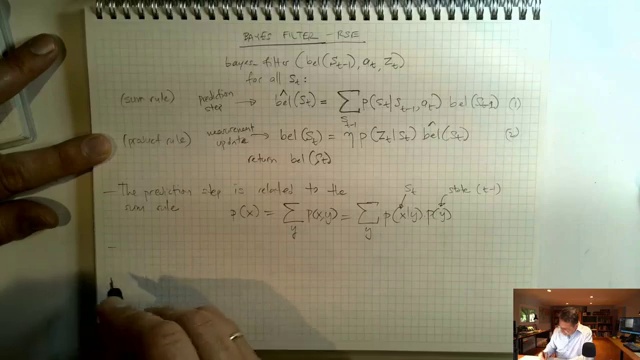 BAYES FILTER - RSE
bayes filter ( bel(S_{t-1}), a_t, Z_t)
for all S_t:
(sum rule) prediction step → bel^(S_t) = ∑_{S_{t-1}} p(S_t|S_{t-1}, a_t) bel(S_{t-1}) (1)
(product rule) measurement update → bel(S_t) = η p(Z_t|S_t) bel^(S_t) (2)
return bel(S_t)
- The prediction step is related to the
sum rule
S_t state (t-1)
p(x) = ∑_y p(x,y) = ∑_y p(x|y) p(y)
-